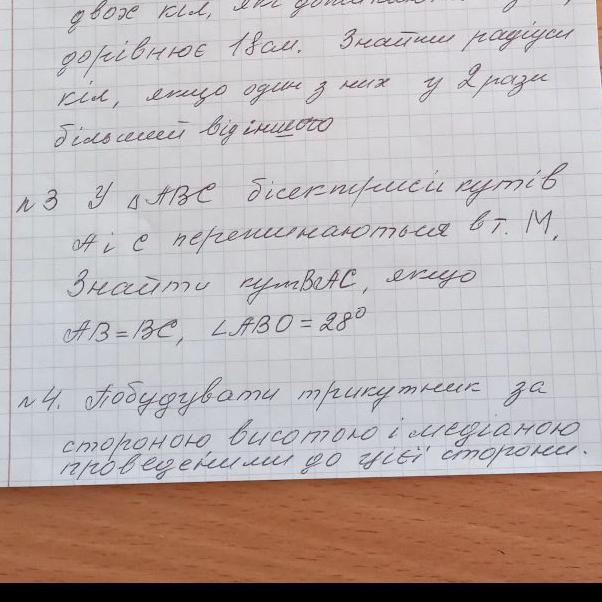 двох кіл, які
дорівнює 18см. Знайти радіуси
кіл, якщо один з них у 2 рази
більший від іншого
n3 У △ABC бісектриси кутів
A і C перетинаються в т. M.
Знайти кут BAC, якщо
AB=BC, ∠ABO=28°
n4. Побудувати трикутник за
стороною висотою і медіаною
проведеними до цієї сторони.